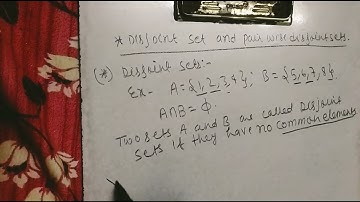 * Disjoint set and pair wise disjoint sets.
(*) Disjoint sets:-
Ex- A={1,2,3,4}; B={5,6,7,8}
A∩B=ϕ.
Two sets A and B are called Disjoint
sets if they have no common elements